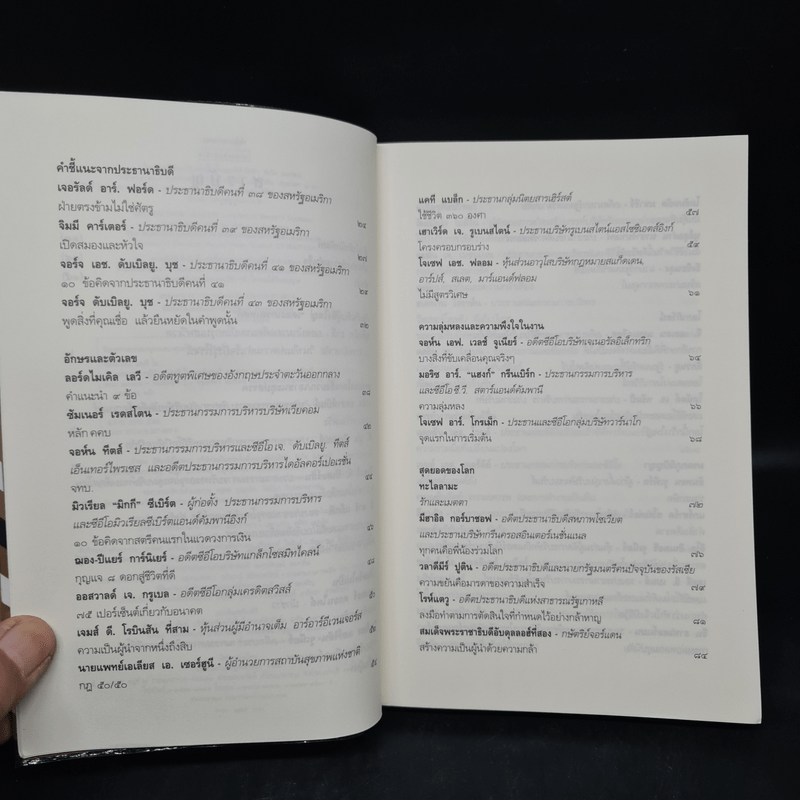 คำชี้แนะจากประธานาธิบดี
เจอรัลด์ อาร์. ฟอร์ด - ประธานาธิบดีคนที่ ๓๘ ของสหรัฐอเมริกา
ฝ่ายตรงข้ามไม่ใช่ศัตรู ๒๔
จิมมี คาร์เตอร์ - ประธานาธิบดีคนที่ ๓๙ ของสหรัฐอเมริกา
เปิดสมองและหัวใจ ๒๗
จอร์จ เอช. ดับเบิลยู. บุช - ประธานาธิบดีคนที่ ๔๑ ของสหรัฐอเมริกา
๑๐ ข้อคิดจากประธานาธิบดีคนที่ ๔๑ ๒๙
จอร์จ ดับเบิลยู. บุช - ประธานาธิบดีคนที่ ๔๓ ของสหรัฐอเมริกา
พูดสิ่งที่คุณเชื่อ แล้วยืนหยัดในคำพูดนั้น ๓๒
อักษรและตัวเลข
ลอร์ดไมเคิล เลวี - อดีตทูตพิเศษของอังกฤษประจำตะวันออกกลาง
คำแนะนำ ๙ ข้อ ๓๘
ซัมเนอร์ เรดสโตน - ประธานกรรมการบริหารบริษัทเวียคอม
หลัก คคบ ๔๒
จอห์น ทีตส์ - ประธานกรรมการบริหารและซีอีโอเจ. ดับเบิลยู. ทีตส์
เอ็นเทอร์ไพรเซส และอดีตประธานกรรมการบริหารไดอัลคอร์เปอเรชั่น
จทบ. ๔๔
มิวเรียล “มิกกี” ซีเบิร์ต - ผู้ก่อตั้ง ประธานกรรมการบริหาร
และซีอีโอมิวเรียลซีเบิร์ตแอนด์คัมพานีอิงก์ ๔๖
๑๐ ข้อคิดจากสตรีคนแรกในแวดวงการเงิน
ฌอง-ปิแยร์ การ์นิเยร์ - อดีตซีอีโอบริษัทแกล็กโซสมิทไคลน์ ๔๘
กุญแจ ๘ ดอกสู่ชีวิตที่ดี
ออสวาลด์ เจ. กรูเบล - อดีตซีอีโอกลุ่มเครดิตสวิสส์
๗๕ เปอร์เซ็นต์เกี่ยวกับอนาคต
เจมส์ ดี. โรบินสัน ที่สาม - หุ้นส่วนผู้มีอำนาจเต็ม อาร์อาร์อีเวนเจอร์ส
ความเป็นผู้นำจากหนึ่งถึงสิบ
นายแพทย์เอเลียส เอ. เซอร์ฮูนี - ผู้อำนวยการสถาบันสุขภาพแห่งชาติ
กฎ ๕๐/๕๐
แคที แบล็ก - ประธานกลุ่มนิตยสารเฮิร์สต์
ใช้ชีวิต ๓๖๐ องศา ๕๗
เฮาเวิร์ด เจ. รูเบนสไตน์ - ประธานบริษัทรูเบนสไตน์แอสโซซิเอตส์อิงก์
โครงครอบกรอบร่าง ๕๙
โจเซฟ เอช. ฟลอม - หุ้นส่วนอาวุโสบริษัทกฎหมายสแก็ดเดน.
อาร์ปส์. สเลต. มาร์แอนด์ฟลอม
ไม่มีสูตรวิเศษ ๖๑
ความลุ่มหลงและความพึงใจในงาน
จอห์น เอฟ. เวลช์ จูเนียร์ - อดีตซีอีโอบริษัทเจเนอรัลอีเล็กทริก
บางสิ่งที่ขับเคลื่อนคุณจริงๆ ๖๔
มอริซ อาร์. “แฮงก์” กรีนเบิร์ก - ประธานกรรมการบริหาร
และซีอีโอซี.วี. สตาร์แอนด์คัมพานี
ความลุ่มหลง ๖๖
โจเซฟ อาร์. โกรเม็ก - ประธานและซีอีโอกลุ่มบริษัทวาร์นาโก
จุดแรกในการเริ่มต้น ๖๘
สุดยอดของโลก
ทะไลลามะ
รักและเมตตา ๗๒
มีฮาอิล กอร์บาชอฟ - อดีตประธานาธิบดีสหภาพโซเวียต
และประธานบริษัทกรีนครอสอินเตอร์เนชั่นแนล
ทุกคนคือพี่น้องร่วมโลก ๗๖
วลาดีมีร์ ปูติน - อดีตประธานาธิบดีและนายกรัฐมนตรีคนปัจจุบันของรัสเซีย
ความขยันคือมารดาของความสำเร็จ ๗๙
โรห์แตวู - อดีตประธานาธิบดีแห่งสาธารณรัฐเกาหลี
ลงมือทำตามการตัดสินใจที่กำหนดไว้อย่างกล้าหาญ ๘๑
สมเด็จพระราชาธิบดีอับดุลลอฮ์ที่สอง - กษัตริย์จอร์แดน
สร้างความเป็นผู้นำด้วยความกล้า ๘๔